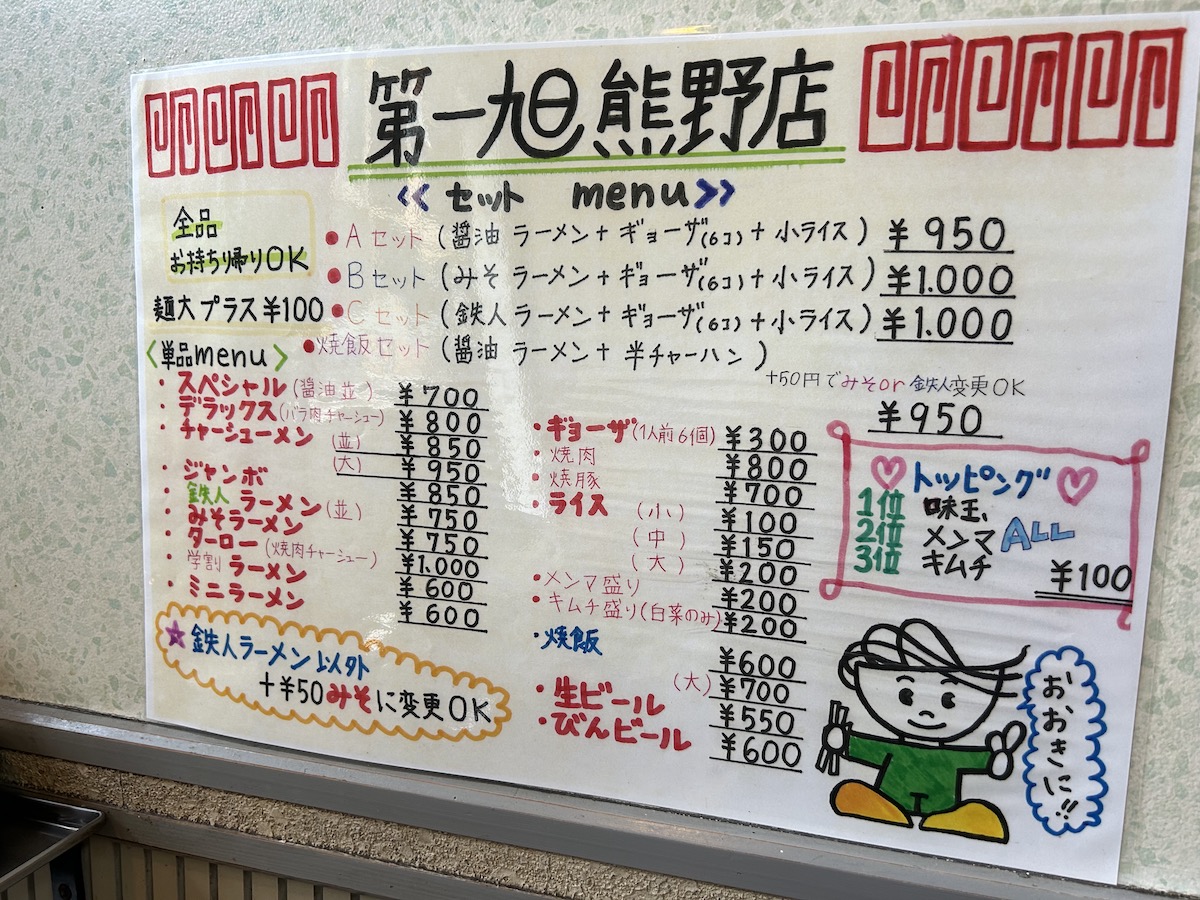 第一旭熊野店
《 セット menu 》
全品
お持ち帰りOK
麺大プラス¥100
・Aセット(醤油ラーメン+ギョーザ(6コ)+小ライス) ¥950
・Bセット(みそラーメン+ギョーザ(6コ)+小ライス) ¥1.000
・Cセット(鉄人ラーメン+ギョーザ(6コ)+小ライス) ¥1.000
・焼飯セット(醤油ラーメン+半チャーハン)
+50円でみそor鉄人変更OK
¥950
〈単品menu〉
・スペシャル(醤油並) ¥700
・デラックス(バラ肉チャーシュー) ¥800
・チャーシューメン(並) ¥850
(大) ¥950
・ジャンボ ¥850
・鉄人ラーメン(並) ¥750
・みそラーメン ¥750
・ターロー(焼肉チャーシュー) ¥1.000
・学割ラーメン ¥600
・ミニラーメン ¥600
★鉄人ラーメン以外
+¥50みそに変更OK
・ギョーザ(1人前6個) ¥300
・焼肉 ¥800
・焼豚 ¥700
・ライス(小) ¥100
(中) ¥150
(大) ¥200
・メンマ盛り ¥200
・キムチ盛り(白菜のみ) ¥200
・焼飯 ¥600
(大) ¥700
・生ビール ¥550
・びんビール ¥600
♡トッピング♡
1位 味玉、
2位 メンマ ALL
3位 キムチ
¥100
おおきに!!